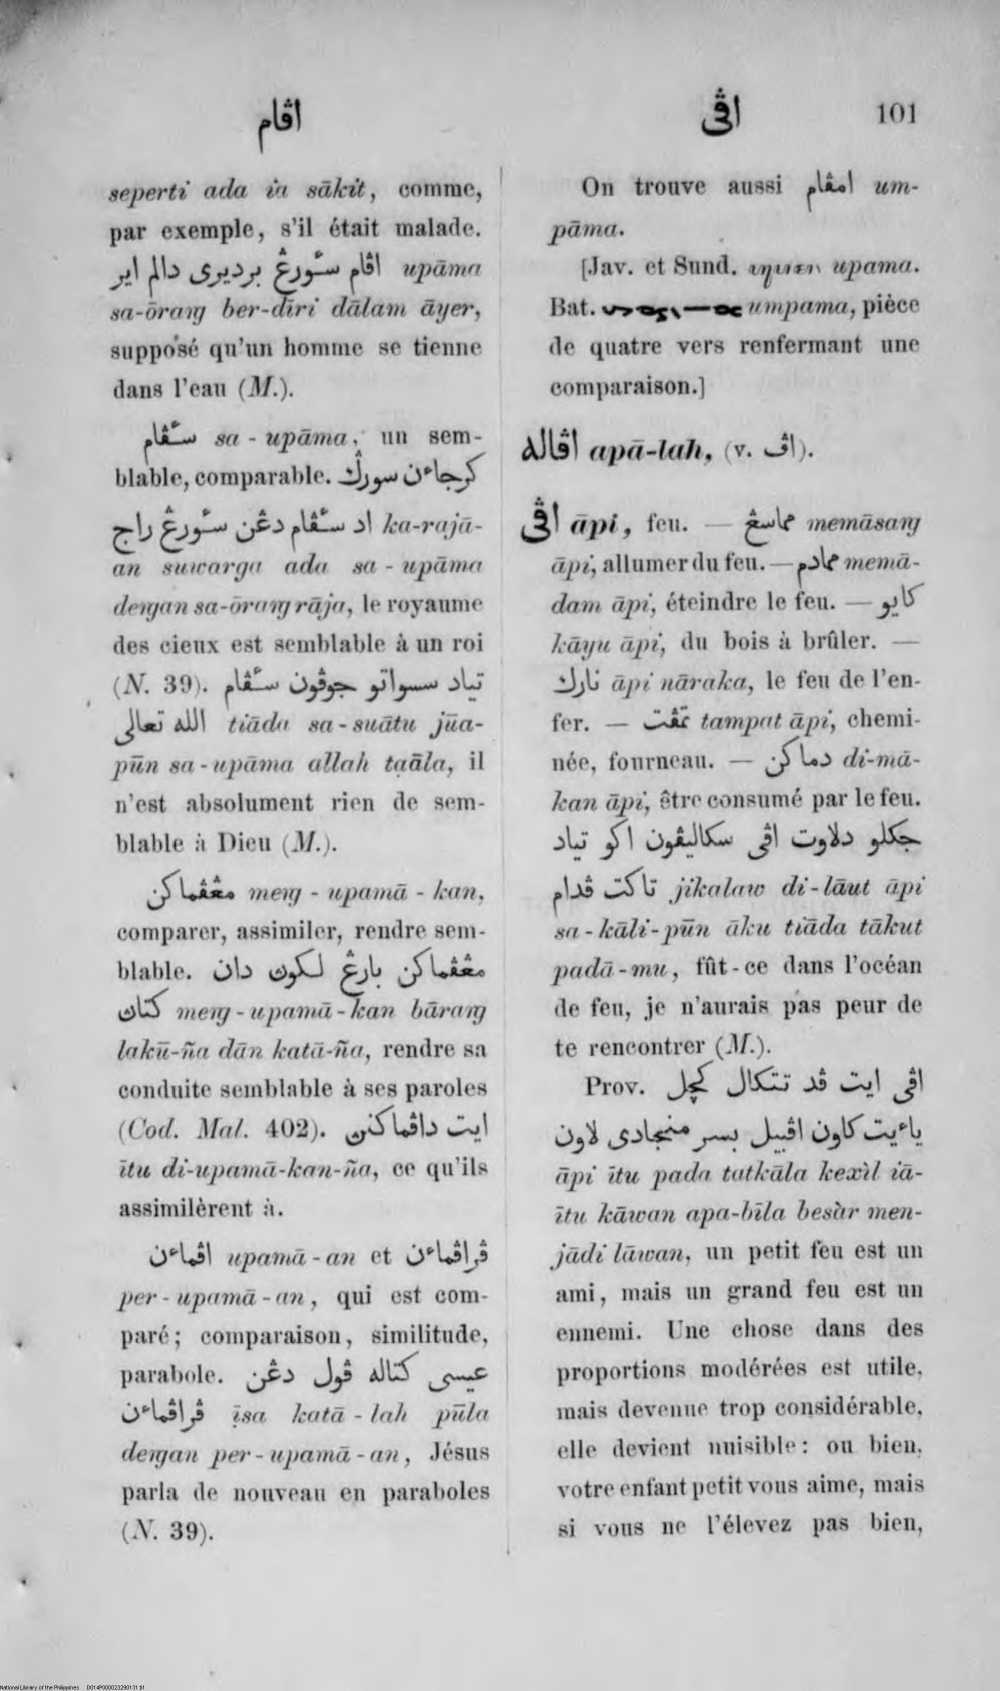 اڤام
اڤي 101
seperti ada īa sākit, comme,
par exemple, s'il était malade.
اڤام سٔورڠ برديرى دالم اير upāma
sa-ōraŋ ber-dīri dālam āyer,
supposé qu'un homme se tienne
dans l'eau (M.).
سٔڤام sa-upāma, un sem-
blable, comparable. كرجاءن سورݢ
اد سٔڤام دڠن سٔورڠ راج ka-rajā-
an suwarga ada sa-upāma
deŋan sa-ōraŋ rāja, le royaume
des cieux est semblable à un roi
(N. 39). تياد سسواتو جوڤون سٔڤام
الله تعالى tiāda sa-suātu jūa-
pūn sa-upāma allah taāla, il
n'est absolument rien de sem-
blable à Dieu (M.).
مڠڤماكن meŋ-upamā-kan,
comparer, assimiler, rendre sem-
blable. مڠڤماكن بارڠ لكون دان
كتان meŋ-upamā-kan bāraŋ
lakū-ña dān katā-ña, rendre sa
conduite semblable à ses paroles
(Cod. Mal. 402). ايت داڤماكنن
ītu di-upamā-kan-ña, ce qu'ils
assimilèrent à.
اڤماءن upamā-an et ڤراڤماءن
per-upamā-an, qui est com-
paré; comparaison, similitude,
parabole. عيسى كتاله ڤول دڠن
ڤراڤماءن īsa katā-lah pūla
deŋan per-upamā-an, Jésus
parla de nouveau en paraboles
(N. 39).
On trouve aussi امڤام um-
pāma.
[Jav. et Sund. upama.
Bat. umpama, pièce
de quatre vers renfermant une
comparaison.]
اڤاله apā-lah, (v. اڤ).
اڤي āpi, feu. — مماسڠ memāsaŋ
āpi, allumer du feu. — ممادم memā-
dam āpi, éteindre le feu. — كايو
kāyu āpi, du bois à brûler. —
نارك āpi nāraka, le feu de l'en-
fer. — تمڤت tampat āpi, chemi-
née, fourneau. — دماكن di-mā-
kan āpi, être consumé par le feu.
جكلو دلاوت اڤي سكاليڤون اكو تياد
تاكت ڤدام jikalaw di-lāut āpi
sa-kāli-pūn āku tiāda tākut
padā-mu, fût-ce dans l'océan
de feu, je n'aurais pas peur de
te rencontrer (M.).
Prov. اڤي ايت ڤد تتكال كچل
ياءيت كاون اڤبيل بسر منجادى لاون
āpi ītu pada tatkāla kexìl iā-
ītu kāwan apa-bīla besàr men-
jādi lāwan, un petit feu est un
ami, mais un grand feu est un
ennemi. Une chose dans des
proportions modérées est utile,
mais devenue trop considérable,
elle devient nuisible: ou bien,
votre enfant petit vous aime, mais
si vous ne l'élevez pas bien,
National Library of the Philippines